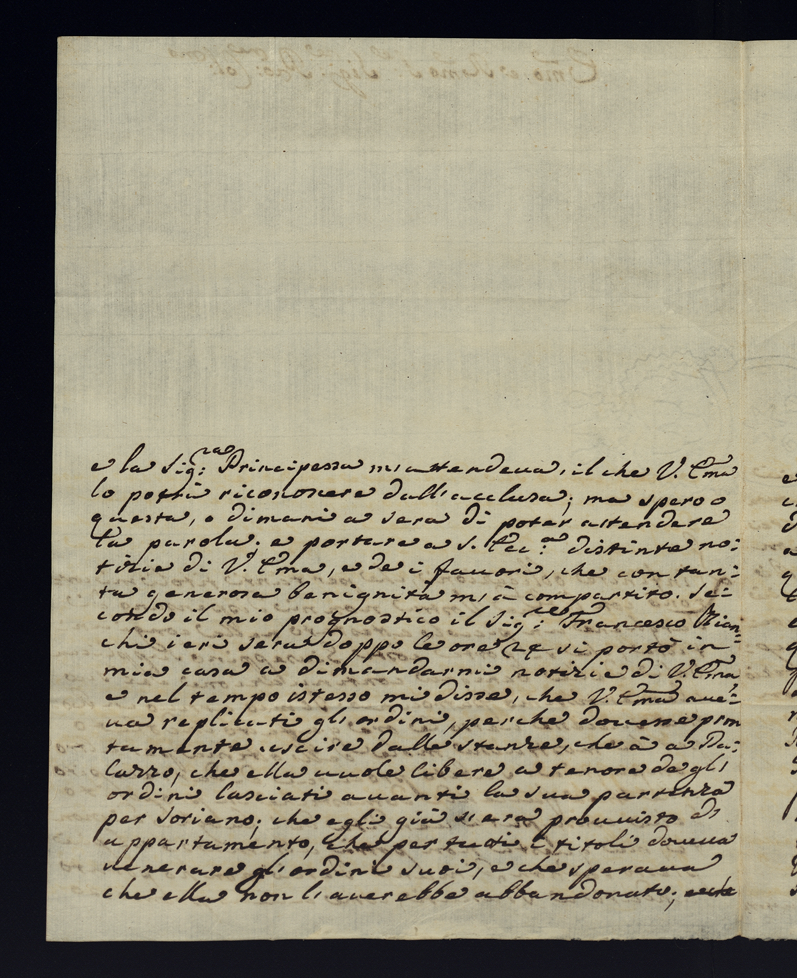 e la Sig:ra Principessa m'attendeva, il che V. Ema
lo potrà riconoscere dall'acclusa; ma spero o
questa, o dimani a sera di poter attendere
la parola; e portare a S. Ecc:a distinte no:
tizie di V. Ema, e de i favori, che con tan:
ta generosa benignità m'à compartito. Se:
condo il mio prognostico il Sig:re Francesco Bian=
chi ieri sera doppo le ore 24 si portò in
mia casa a dimandarmi notizie di V. Ema,
e nel tempo istesso mi disse, che V. Ema ave:
va replicati gl'ordini, perche dovesse pron
tamente uscire dalle stanze, che à a Pa:
lazzo, che ella vuole libere a tenore degl'
ordini lasciati avanti la sua partenza
per Soriano; che egli già s'era provvisto di
appartamento, che per tutti i titoli doveva
venerare gl'ordini suoi, e che sperava
che ella non l'averebbe abbandonato;